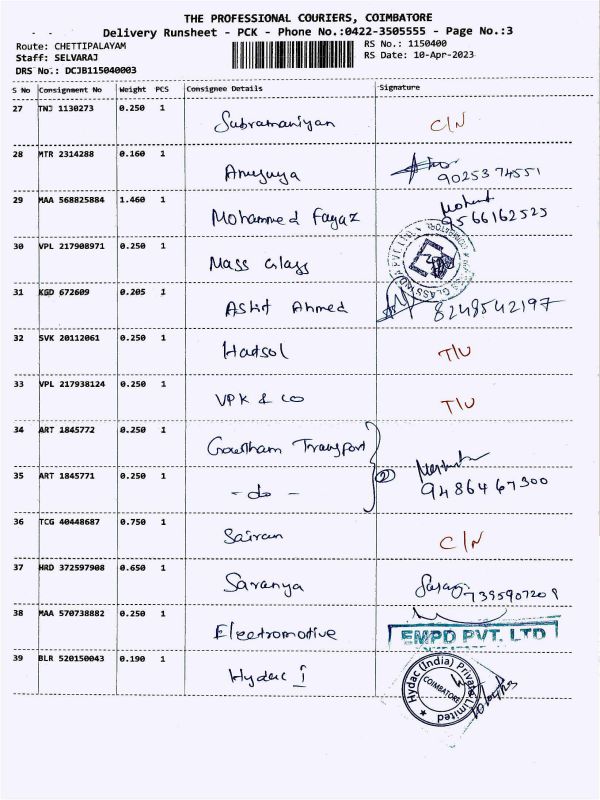 THE PROFESSIONAL COURIERS, COIMBATORE
Delivery Runsheet - PCK - Phone No.:0422-3505555 - Page No.:3
Route: CHETTIPALAYAM RS No.: 1150400
Staff: SELVARAJ RS Date: 10-Apr-2023
DRS No.: DCJB115040003
S No Consignment No Weight PCS Consignee Details Signature
27 TNJ 1130273 0.250 1 Subramaniyan C/N
28 MTR 2314288 0.160 1 Anusuya 9025374551
29 MAA 568825884 1.460 1 Mohammed Fayaz 9566162525
30 VPL 217908971 0.250 1 Mass Glass
31 KGD 672609 0.205 1 Ashif Ahmed 8248542197
32 SVK 20112061 0.250 1 Hatsol T/U
33 VPL 217938124 0.250 1 VPK & CO T/U
34 ART 1845772 0.250 1 Gowtham Transport
35 ART 1845771 0.250 1 - do - 2 9486467300
36 TCG 40448687 0.750 1 Sairam C/N
37 HRD 372597908 0.650 1 Saranya 7395907209
38 MAA 570738882 0.250 1 Electromotive EMPD PVT. LTD
39 BLR 520150043 0.190 1 Hydac I Hydac (India) Private Limited COIMBATORE